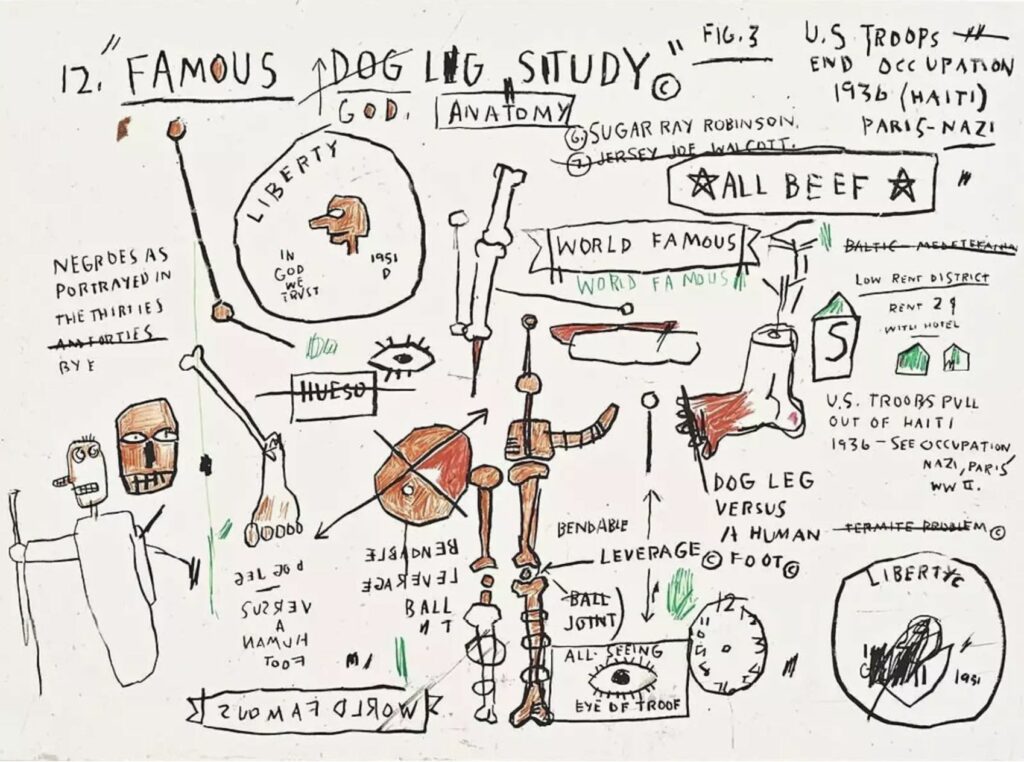 12. "FAMOUS DOG LEG STUDY" ©
GOD.
ANATOMY
FIG. 3
U.S TROOPS
END OCCUPATION
1936 (HAITI)
PARIS-NAZI
⑥ SUGAR RAY ROBINSON.
⑦ JERSEY JOE WALCOTT.
☆ALL BEEF ☆
LIBERTY
IN
GOD
WE
TRUST
1951
D
WORLD FAMOUS
WORLD FAMOUS
NEGROES AS
PORTRAYED IN
THE THIRTIES
BY E
HUESO
BALTIC-
LOW RENT DISTRICT
RENT 2
WITH HOTEL
S
U.S. TROOPS PULL
OUT OF HAITI
1936 - SEE OCCUPATION
NAZI, PARIS
WW II.
TERMITE PROBLEM ©
DOG LEG
VERSUS
A HUMAN
FOOT ©
BENDABLE
LEVERAGE ©
BALL
JOINT
BENDABLE
LEVERAGE
BALL
NT
DOG LEG
VERSUS
A
HUMAN
FOOT
ALL-SEEING
EYE OF TROOF
12
LIBERTY
1951
WORLD FAMOUS